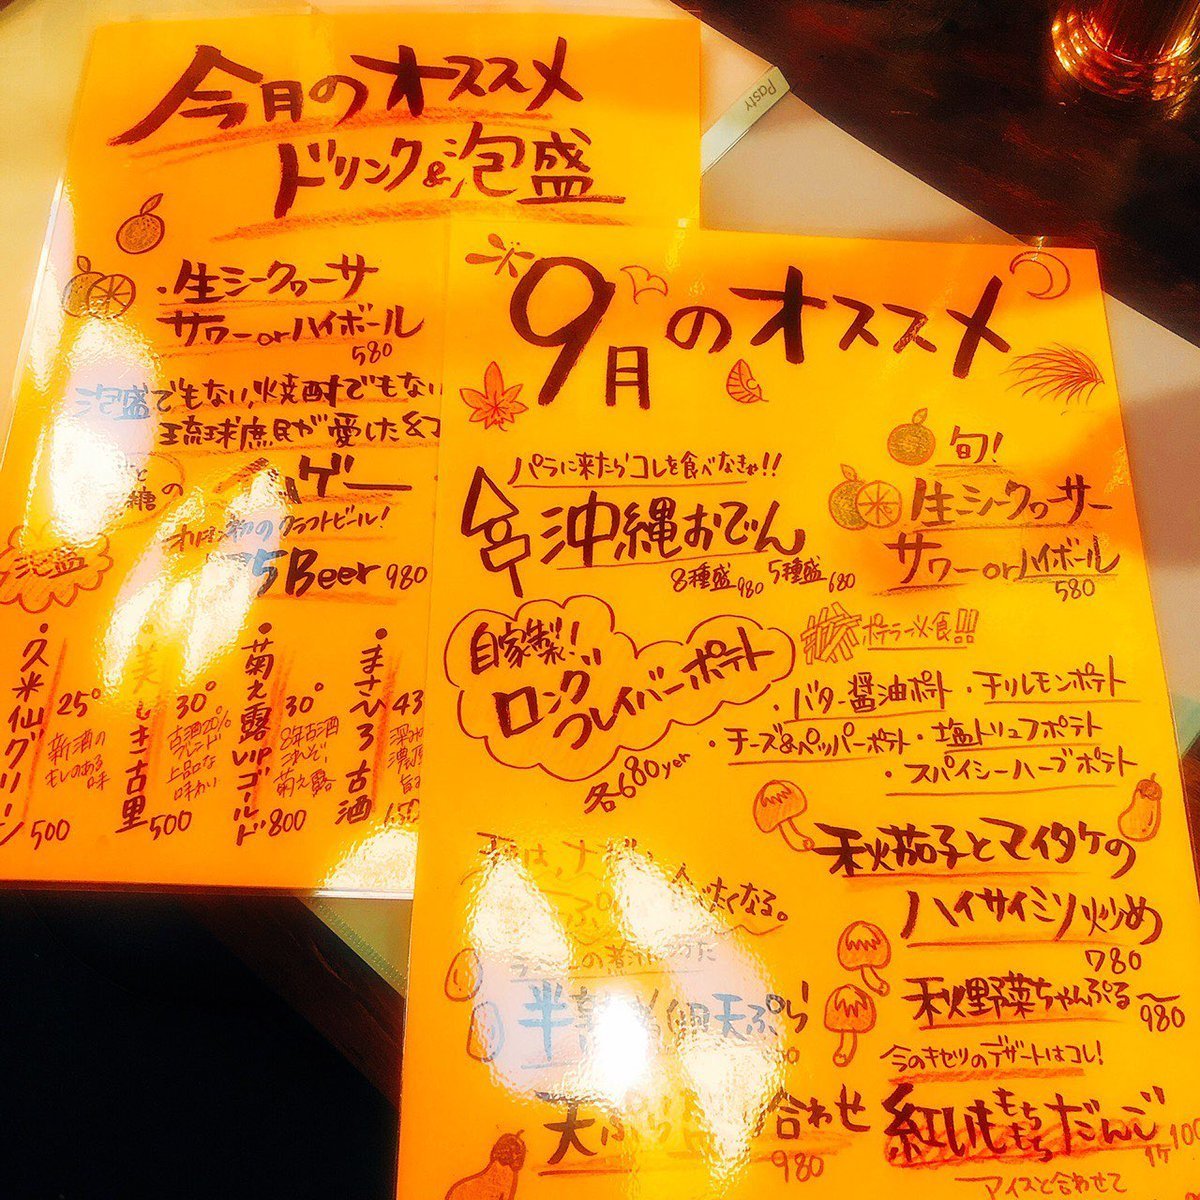 今月のオススメ
ドリンク&泡盛
・生シークヮーサー
サワーorハイボール
580
泡盛でもない、焼酎でもない
琉球庶民が愛した
糖の
ゲー
初のクラフトビール!
75Beer 980
泡盛
・久米仙グリーン
25°
新酒の
キレのある
味
500
・美しき古里
30°
古酒20%
ブレンド
上品な
味わい
500
・菊之露VIPゴールド
30°
8年古酒
これぞ
菊之露
800
・まさひろ古酒
43
Pasty
9月のオススメ
パラに来たらコレを食べなきゃ!!
沖縄おでん
8種盛980 5種盛680
旬!
生シークヮーサー
サワーorハイボール
580
自家製!
ロング
フレイバーポテト
各680yen
ポテラー必食!!!
・バター醤油ポテト ・チリレモンポテト
・チーズ&ペッパーポテト ・塩トリュフポテト
・スパイシーハーブポテト
秋茄子とマイタケの
ハイサイミソ炒め
780
秋野菜ちゃんぷる〜
980
たくなる。
の煮汁につけた
半熟
天ぷら
天ぷら
合わせ
980
今のキセツのデザートはコレ!
紅いももちもちだんご
1ケ100
アイスと合わせて